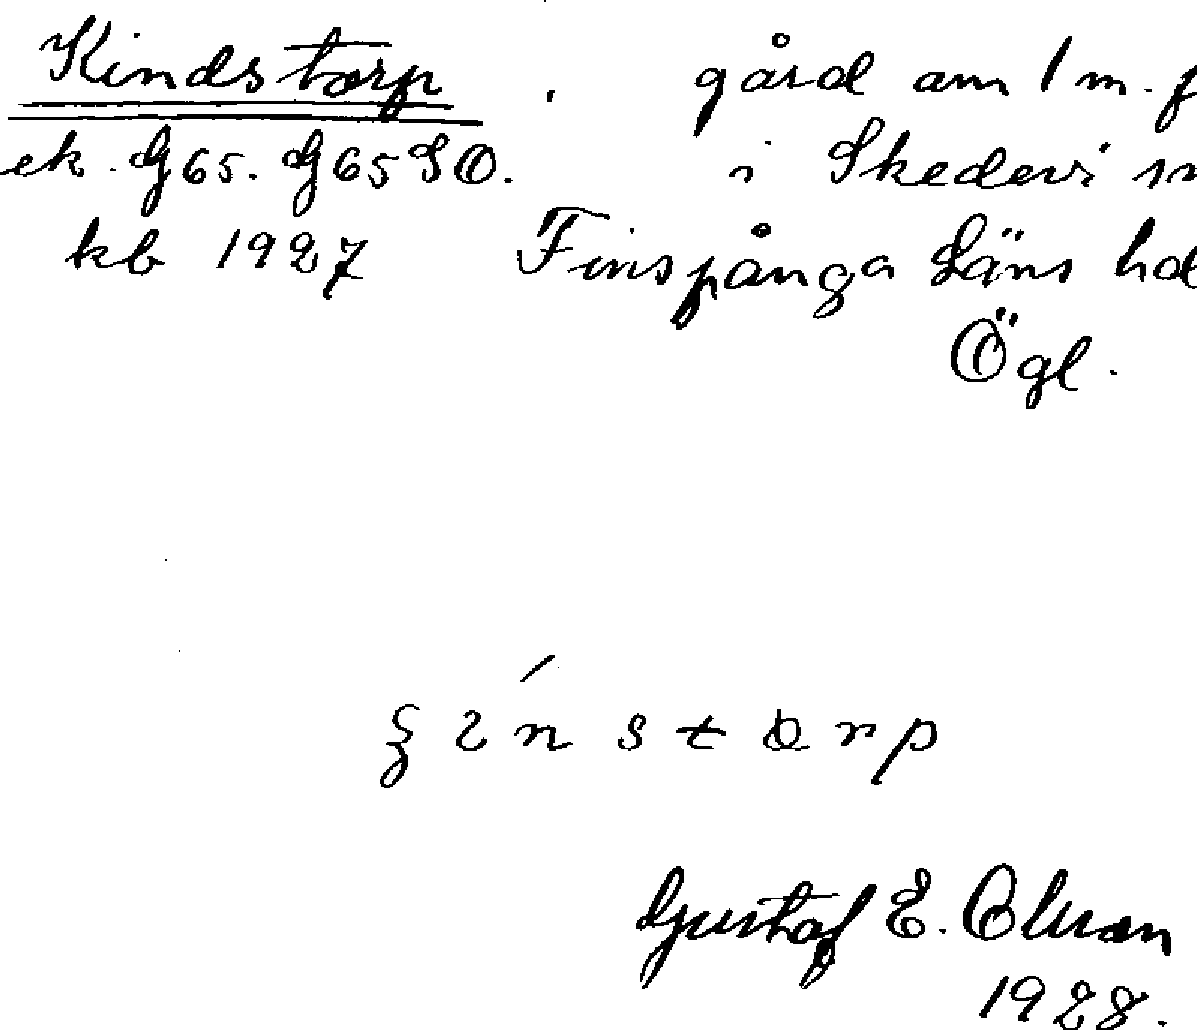 Kindstorp . gård om 1 m. f
ek. G65. G65SO. i Skedevi sn
kb 1927 Finspånga Läns hd
Ögl.
Gustaf E. Olson
1928.